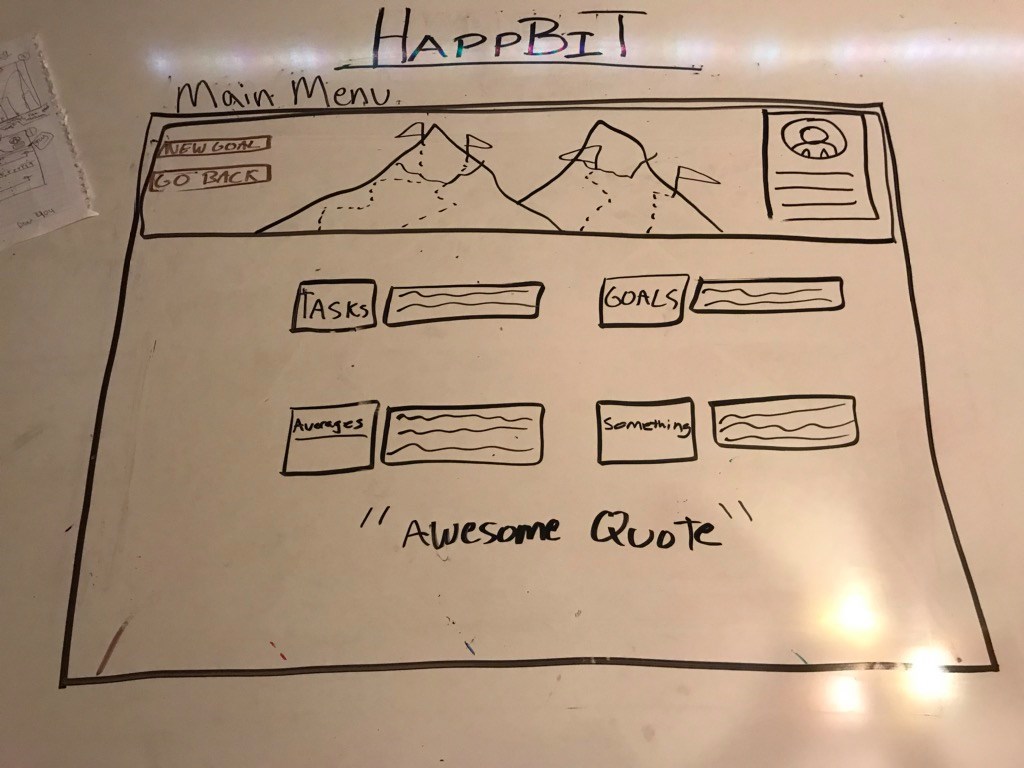 HAPPBIT
Main Menu
NEW GOAL
GO BACK
TASKS
GOALS
Averages
Something
"Awesome Quote"